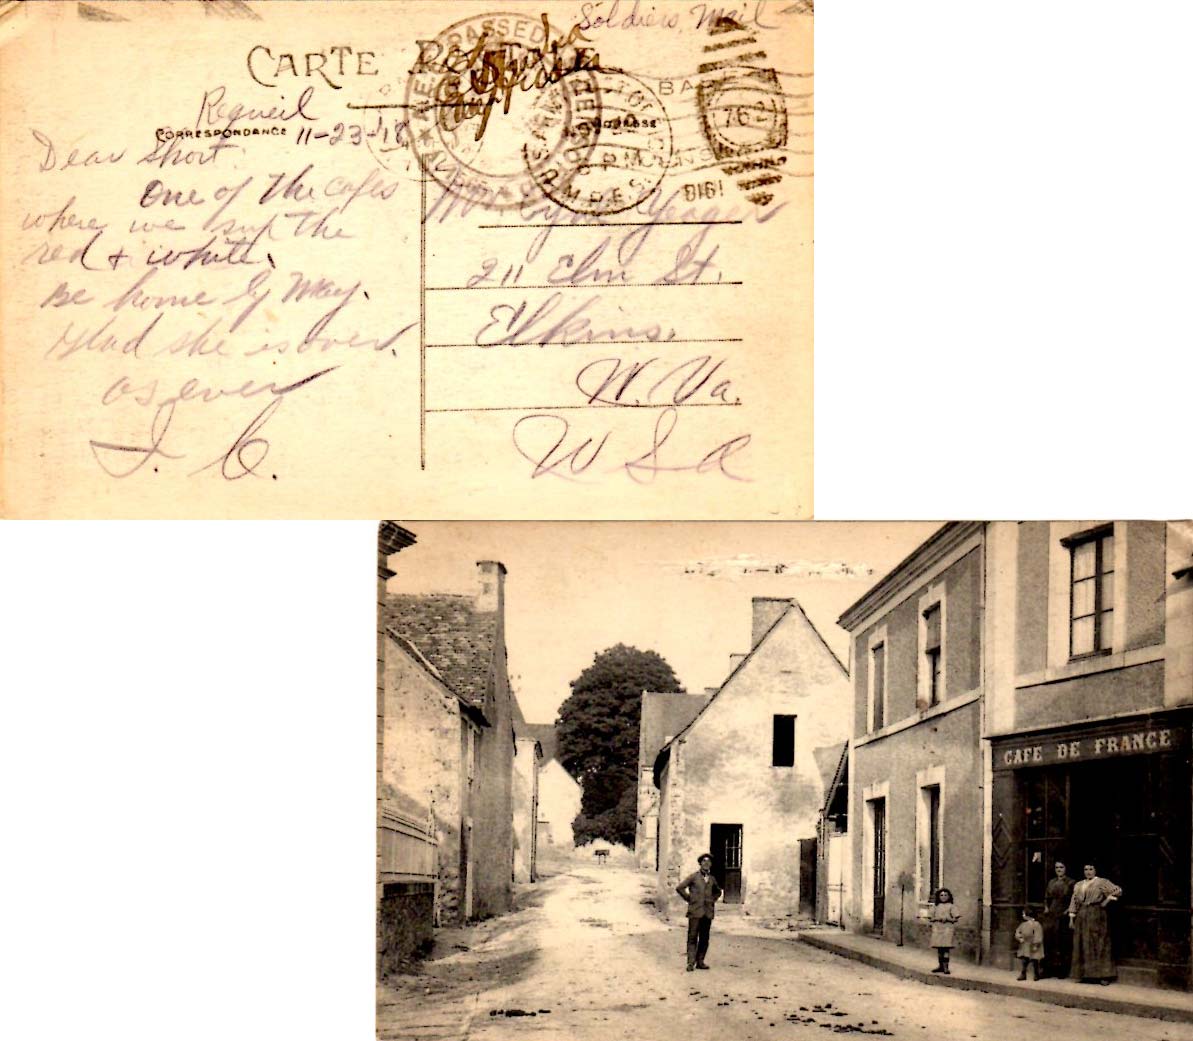 Soldiers Mail
CARTE POSTALE
Requeil
CORRESPONDANCE 11-23-18
Dear Short.
One of the cafes
where we sup the
red & white.
Be home by May.
Glad she is over.
as ever
J. C.
PASSED
P.M.
M.P.E.S.
762
Yeager
211 Elm St.
Elkins.
W. Va.
USA
CAFE DE FRANCE